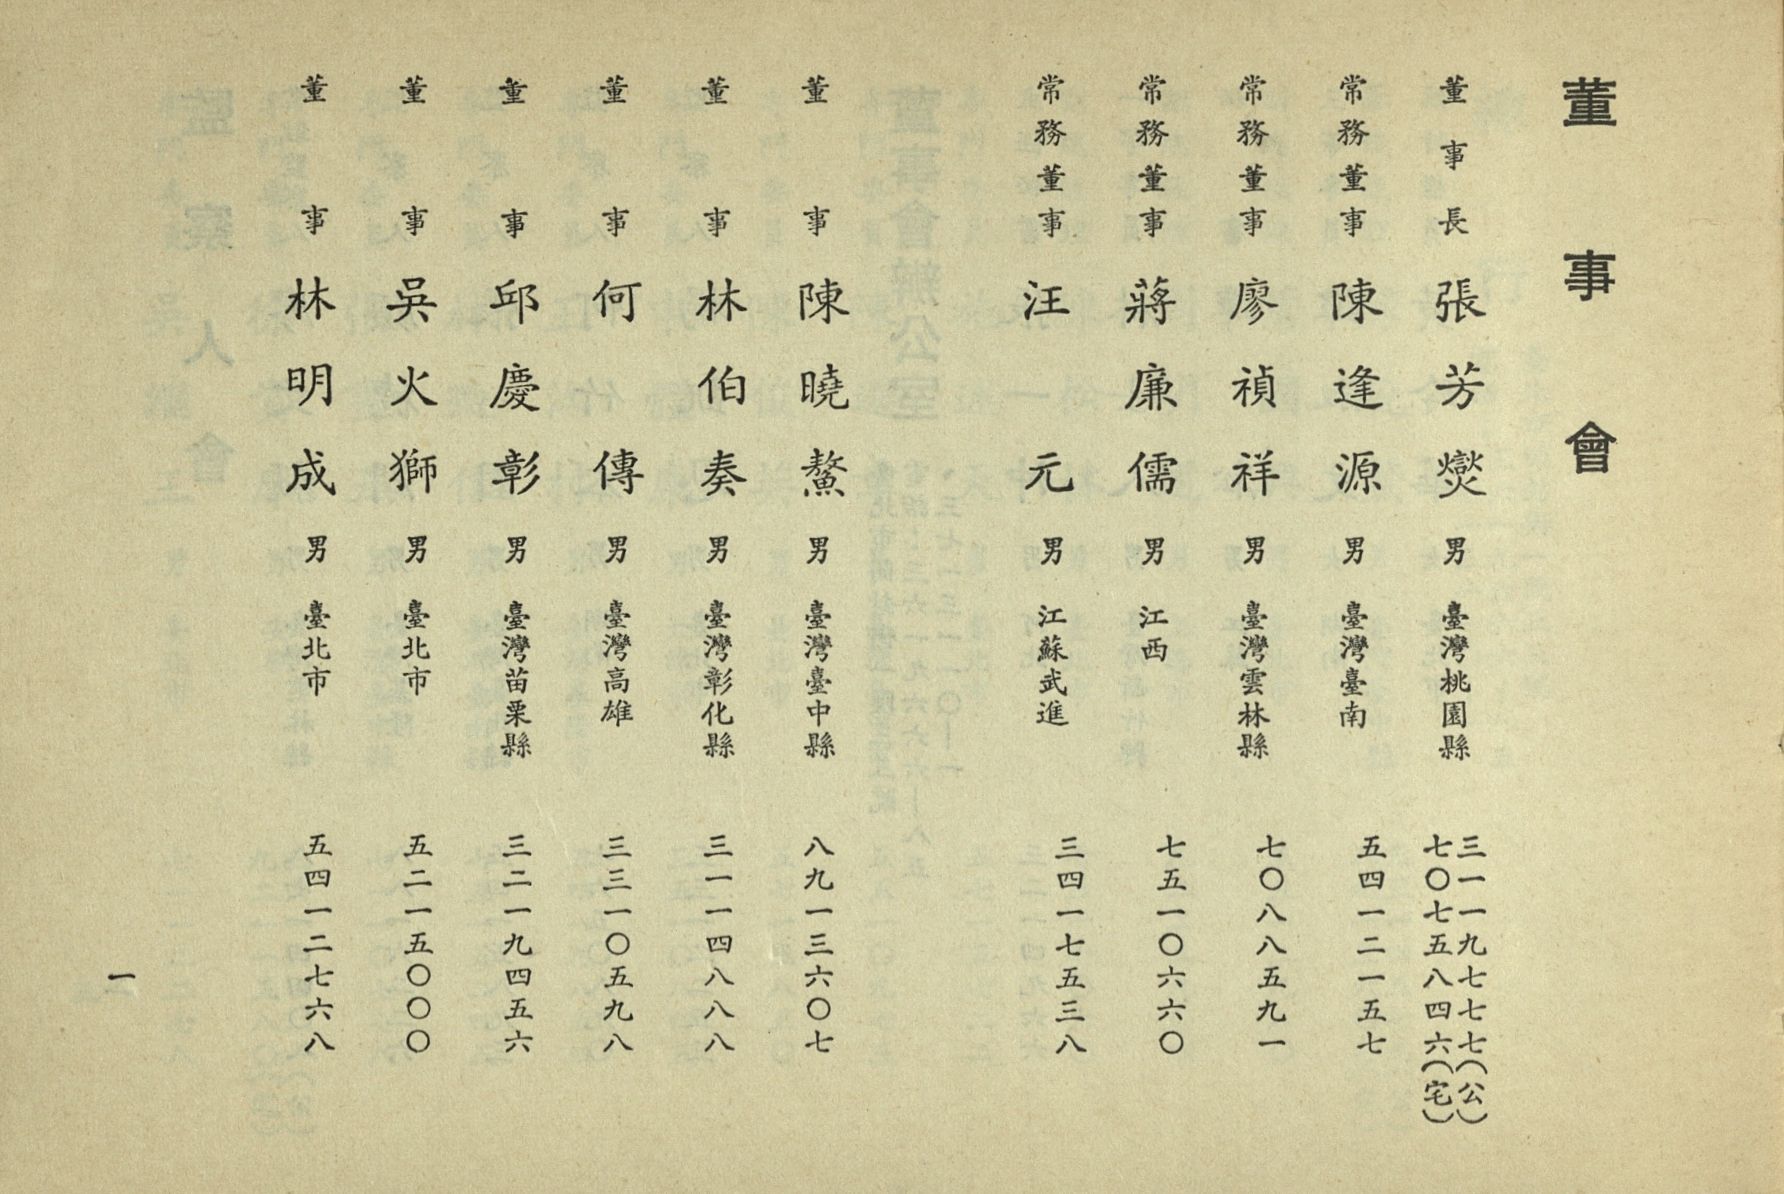 董事會
董事長 張芳燮 男 臺灣桃園縣 三一一九七七七（公） 七〇七五八四六（宅）
常務董事 陳逢源 男 臺灣臺南 五四一二一五七
常務董事 廖禎祥 男 臺灣雲林縣 七〇八八五九一
常務董事 蔣廉儒 男 江西 七五一〇六六〇
常務董事 汪元 男 江蘇武進 三四一七五三八
董事 陳曉鰲 男 臺灣臺中縣 八九一三六〇七
董事 林伯奏 男 臺灣彰化縣 三一一四八八八
董事 何傳 男 臺灣高雄 三三一〇五九八
董事 邱慶彰 男 臺灣苗栗縣 三二一九四五六
董事 吳火獅 男 臺北市 五二一五〇〇〇
董事 林明成 男 臺北市 五四一二七六八
一